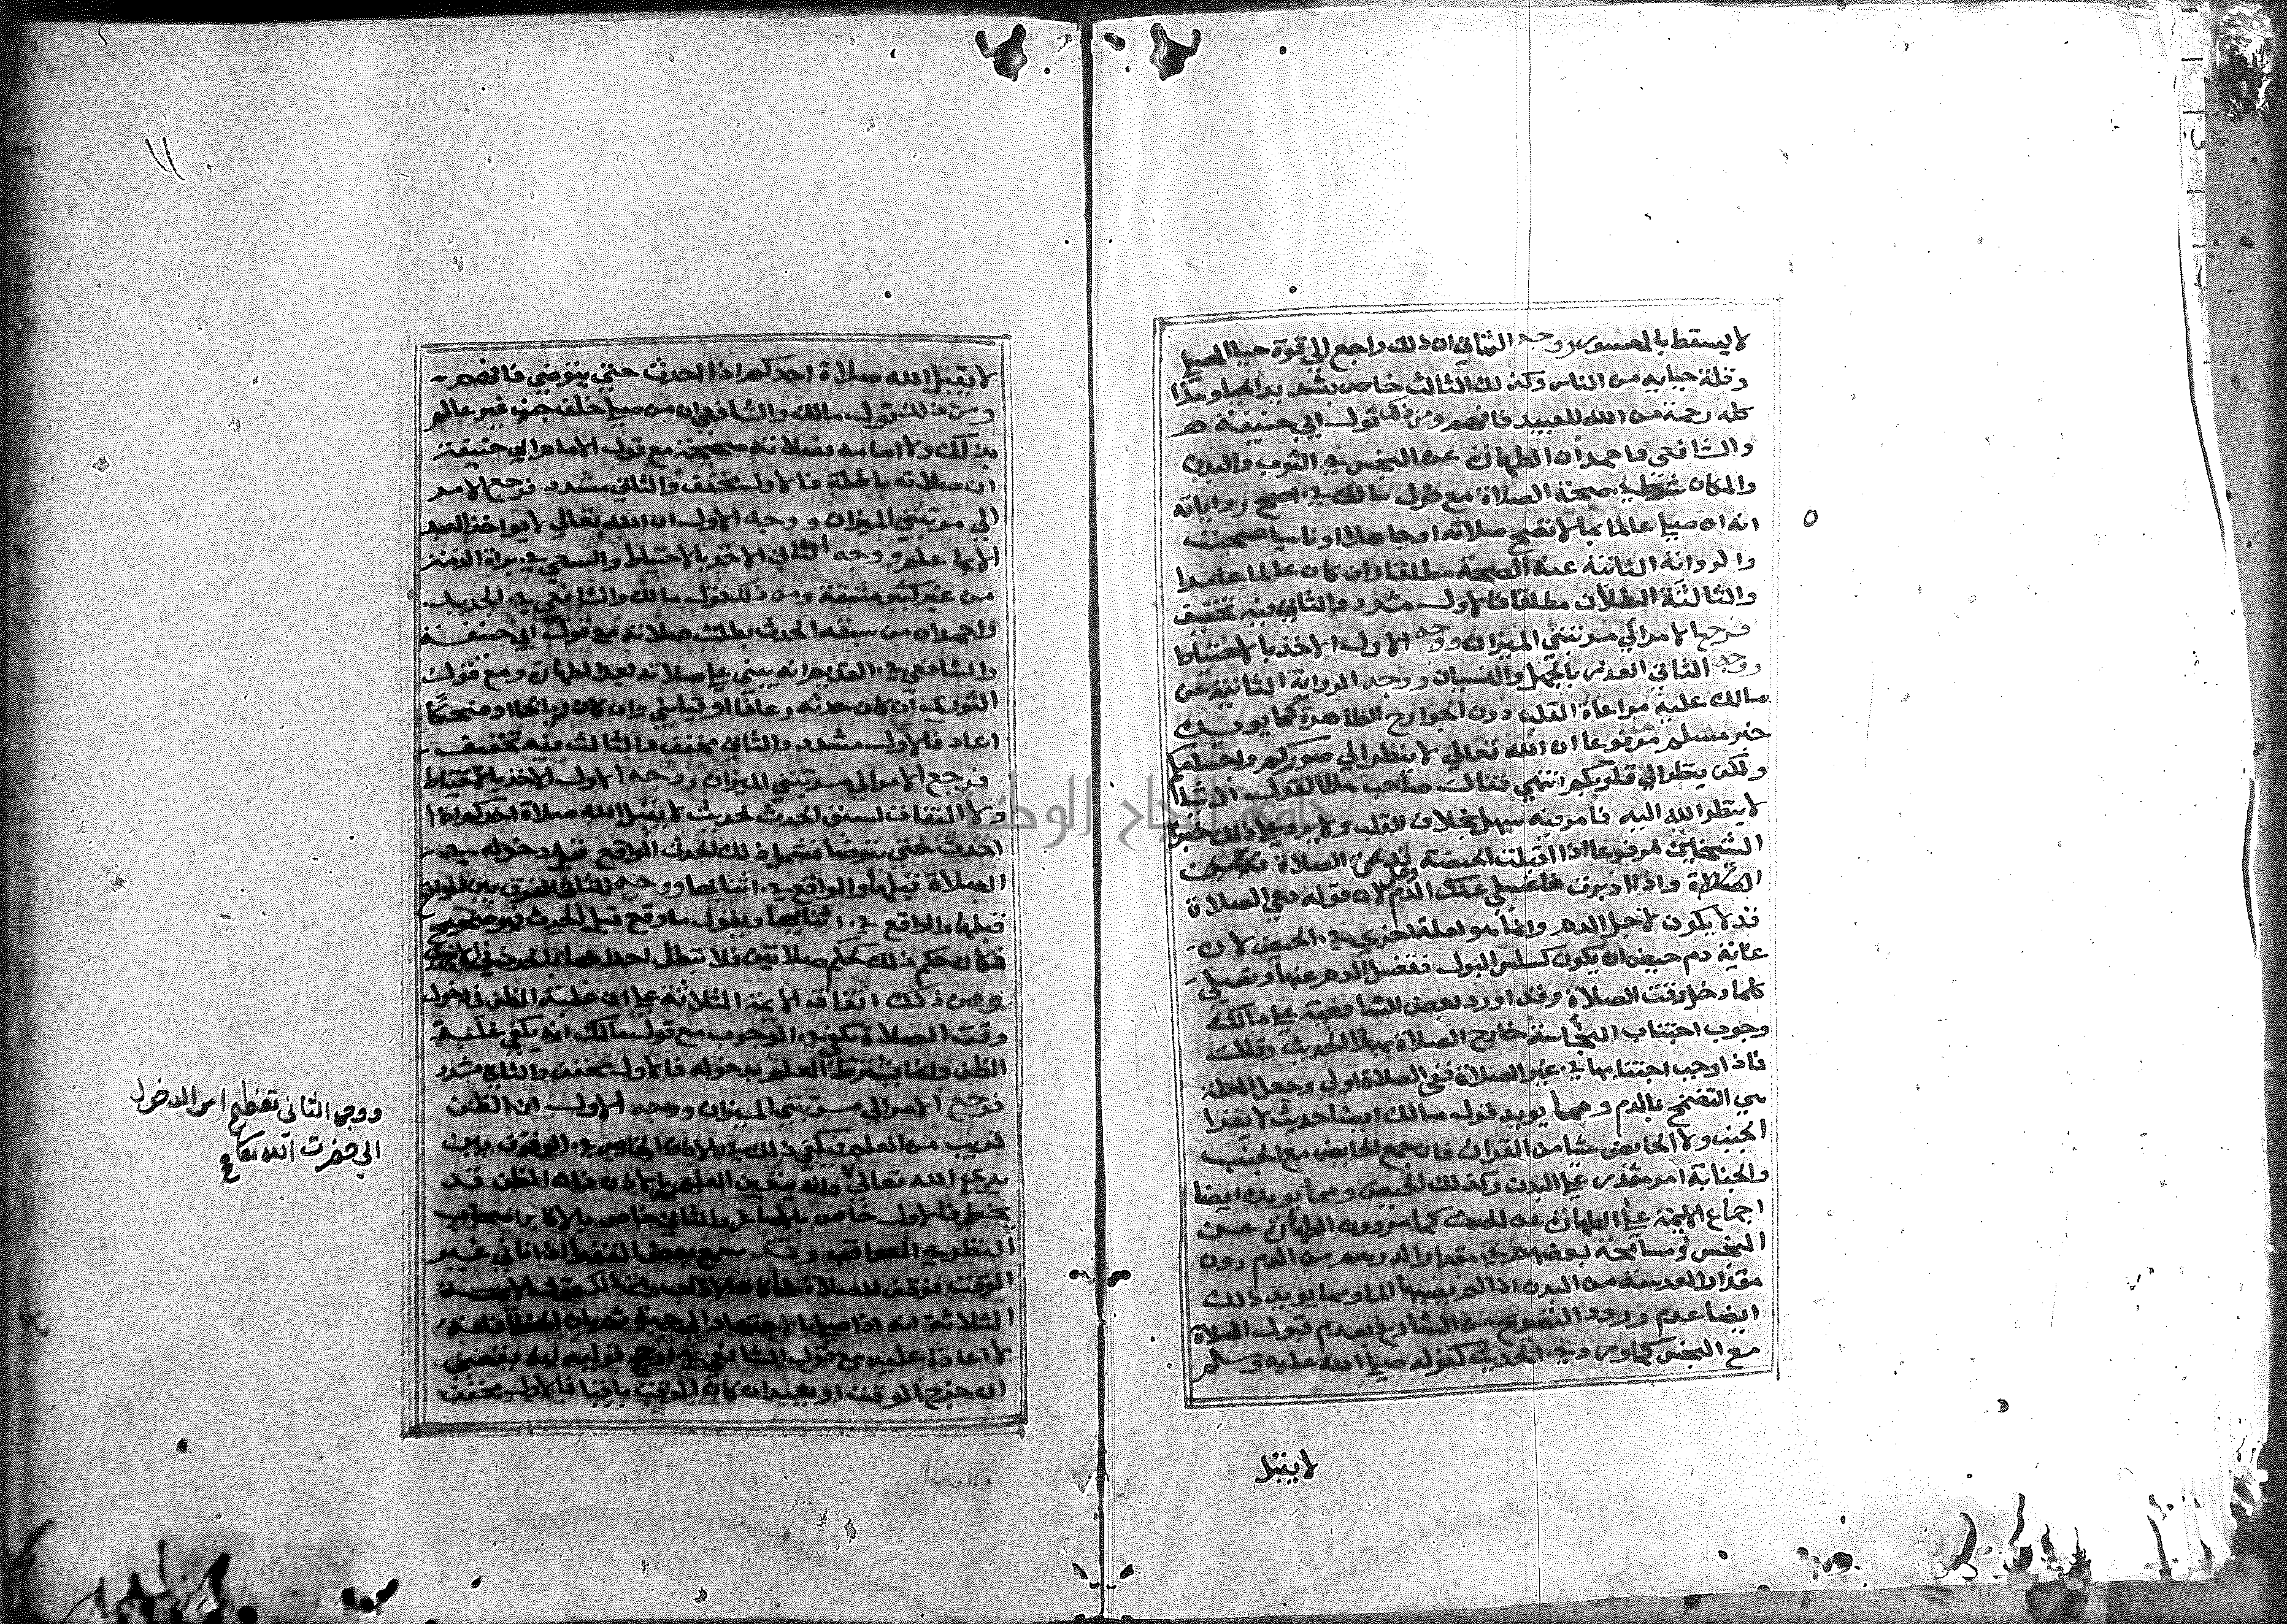 لا يسقط بالمعسور ووجه الثاني ان ذلك راجع الي قوة حيا المصلي
وقلة حيايه من الناس وكذلك الثالث خاص بشديد الحيا وهذا
كله رحمة من الله للعبيد فافهم ومن ذلك قول ابي حنيفة
والشافعي واحمد ان الطهارة عن النجس في الثوب والبدن
والمكان شرط في صحة الصلاة مع قول مالك في اصح رواياته
انه ان صلي عالما بها لم تصح صلاته او جاهلا او ناسيا صحت
والرواية الثانية عنه الصحة مطلقا وان كان عالما عامدا
والثالثة البطلان مطلقا فالاول مشدد والثاني فيه تخفيف
فرجع الامر الي مرتبتي الميزان ووجه الاول الاخذ بالاحتياط
ووجه الثاني العذر بالجهل والنسيان ووجه الرواية الثانية عن
مالك غلبة مراعاة القلب دون الجوارح الظاهرة كما يويده
خبر مسلم مرفوعا ان الله تعالي لا ينظر الي صوركم ولا اجسامكم
ولكن ينظر الي قلوبكم انتهي فقال صاحب هذا القول
لا ينظر الله اليه فامره فيه سهل بخلاف القلب ولا يرد علي ذلك خبر
الشيخين مرفوعا اذا اقبلت الحيضة فدعي الصلاة
الصلاة واذا ادبرت فاغسلي عنك الدم وصلي لان قوله دعي الصلاة
قد لا يكون لاجل الدم وانما هو لعلة اخري في الحيض لان
غاية دم حيض ان يكون كسلس البول فتغسل الدم عنها وتصلي
كلما دخل وقت الصلاة وقد اورد بعض الشافعية علي مالك
وجوب اجتناب النجاسة خارج الصلاة بهذا الحديث وقال
فاذا وجب اجتنابها في غير الصلاة ففي الصلاة اولي وجعل العلة
هي التضمخ بالدم ومما يويد قول مالك ايضا حديث لا يقرا
الجنب ولا الحايض شيا من القران فانه جمع الحايض مع الجنب
والجنابة امر مقدر علي البدن وكذلك الحيض ومما يويده ايضا
اجماع الايمة علي الطهارة عن الحدث كما مر دون الطهارة عن
النجس ومسامحة بعضهم في مقدار الدرهم من الدم دون
مقدار العدسة من البدن اذا لم يصبها الما ومما يويد ذلك
ايضا عدم ورود التصريح من الشارع بعدم قبول الصلاة
مع النجس كما ورد في الحديث كقوله صلي الله عليه وسلم
لا يقبل
لا يقبل الله صلاة احدكم اذا احدث حتي يتوضي فافهم
ومن ذلك قول مالك والشافعي ان من صلي خلف جنب غير عالم
بذلك ولا امامه فصلاته صحيحة مع قول الامام ابي حنيفة
ان صلاته باطلة فالاول مخفف والثاني مشدد فرجع الامر
الي مرتبتي الميزان ووجه الاول ان الله تعالي لا يواخذ العبد
الا بما علم ووجه الثاني الاخذ بالاحتياط والسعي في براة الذمة
من غير كثير مشقة ومن ذلك قول مالك والشافعي في الجديد
واحمد ان من سبقه الحدث بطلت صلاته مع قول ابي حنيفة
والشافعي في القديم انه يبني علي صلاته بعد الطهارة ومع قول
الثوري ان كان حدثه رعافا او قيا بني وان كان ريحا او ضحكا
اعاد فالاول مشدد والثاني مخفف والثالث فيه تخفيف
فرجع الامر الي مرتبتي الميزان ووجه الاول الاخذ بالاحتياط
ولا التفات لسبق الحدث لحديث لا يقبل الله صلاة احدكم اذا
احدث حتي يتوضا فشمل ذلك الحدث الواقع قبل دخوله في
الصلاة قبلها والواقع في اثنايها ووجه الثاني الفرق بين الواقع
قبلها والواقع في اثنايها ويقول ما وقع قبل الحدث فهو صحيح
فكان حكم ذلك كحكم صلاتين فلا تبطل احداهما
ومن ذلك اتفاق الايمة الثلاثة علي ان غلبة الظن في دخول
وقت الصلاة تكفي في الوجوب مع قول مالك انه لا يكفي غلبة
الظن وانما يشترط العلم بدخوله فالاول مخفف والثاني مشدد
فرجع الامر الي مرتبتي الميزان ووجه الاول ان الظن
قريب من العلم فيكفي ذلك في الاذن الخاص في الوقوف بين
يدي الله تعالي يتعين العلم بالاذن فان الظن قد
يخطي فالاول خاص بالاصاغر والثاني خاص بالاكابر اصحاب
النظر في العواقب وقد سمع بعضهم
الوقت فوقف للصلاة ومن ذلك قول الايمة
الثلاثة انه اذا صلي بالاجتهاد الي جهة ثم بان الخطا فانه
لا اعادة عليه مع قول الشافعي في ارجح قوليه انه يقضي
ان خرج الوقت او يعيد ان كان الوقت باقيا فالاول مخفف
ووجه الثاني تعظيم امر الدخول
الي حضرت الله تعالي
١١